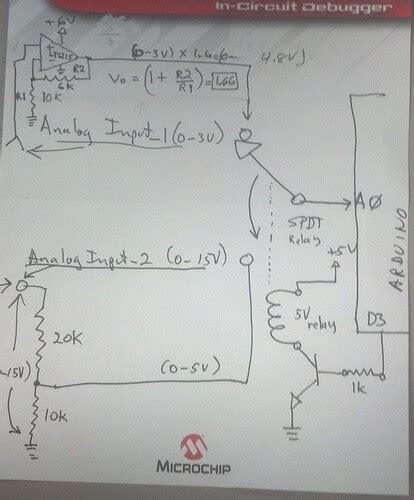 In-Circuit Debugger
+6V
3/3
R2
6K
R1
10K
(0-3V) x 1.66
4.8V)
Vo = (1 + R2/R1) = 1.66
Analog Input_1 (0-3V)
A0
SPDT
Relay
+5V
ARDUINO
Analog Input_2 (0-15V)
5V
relay
D3
20K
-15V)
(0-5V)
1k
10K
MICROCHIP